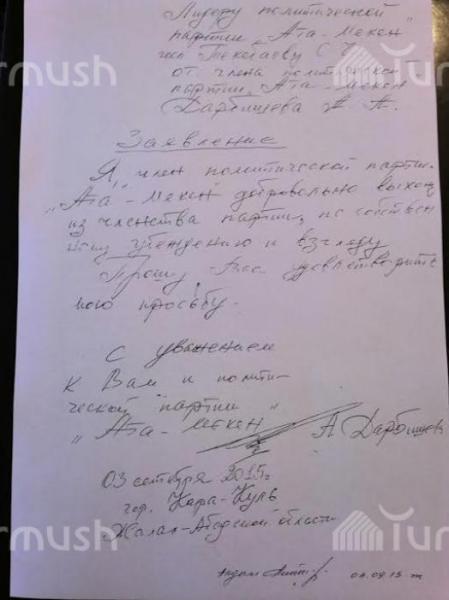 Лидеру политической
партии „Ата-Мекен"
Текебаеву
от члена политической
партии „Ата-Мекен
Дарбишева А.
Заявление
Я, член политической партии
„Ата-Мекен" добровольно выхожу
из членства партии, по собствен
ному убеждению и взгляду
Прошу Вас удовлетворить
мою просьбу.
С уважением
к Вам и полити-
ческой партии
„Ата-Мекен
А Дарбишев
03 сентября 2015г
гор. Кара-Куль
Жалал-Абадской области
04.09.15
Turmush
Turmush
Turmush